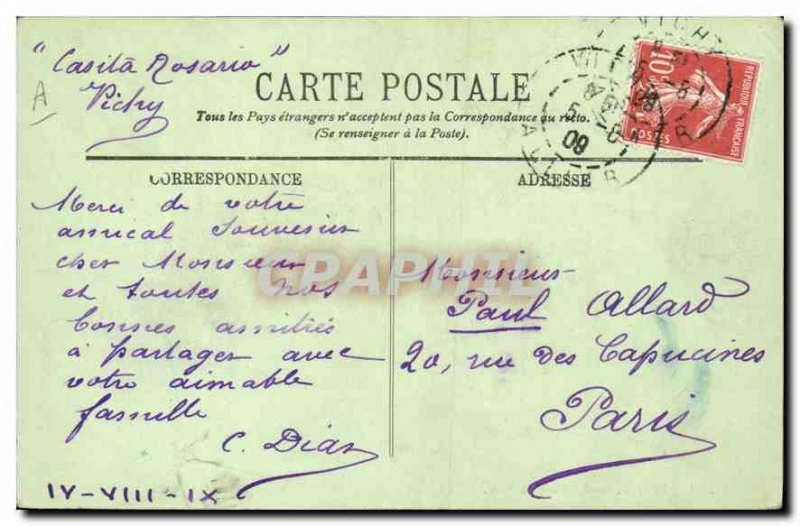 "Casita Rosario"
Vichy
A
CARTE POSTALE
Tous les Pays étrangers n'acceptent pas la Correspondance au recto.
(Se renseigner à la Poste).
CORRESPONDANCE
ADRESSE
10
REPUBLIQUE FRANÇAISE
POSTES
VICHY
09
Merci de votre
amical Souvenir
cher Monsieur
et toutes nos
bonnes amitiés
à partager avec
votre aimable
famille
C. Dias
IV-VIII-IX
Monsieur
Paul Allard
20, rue des Capucines
Paris
CPAPHIL